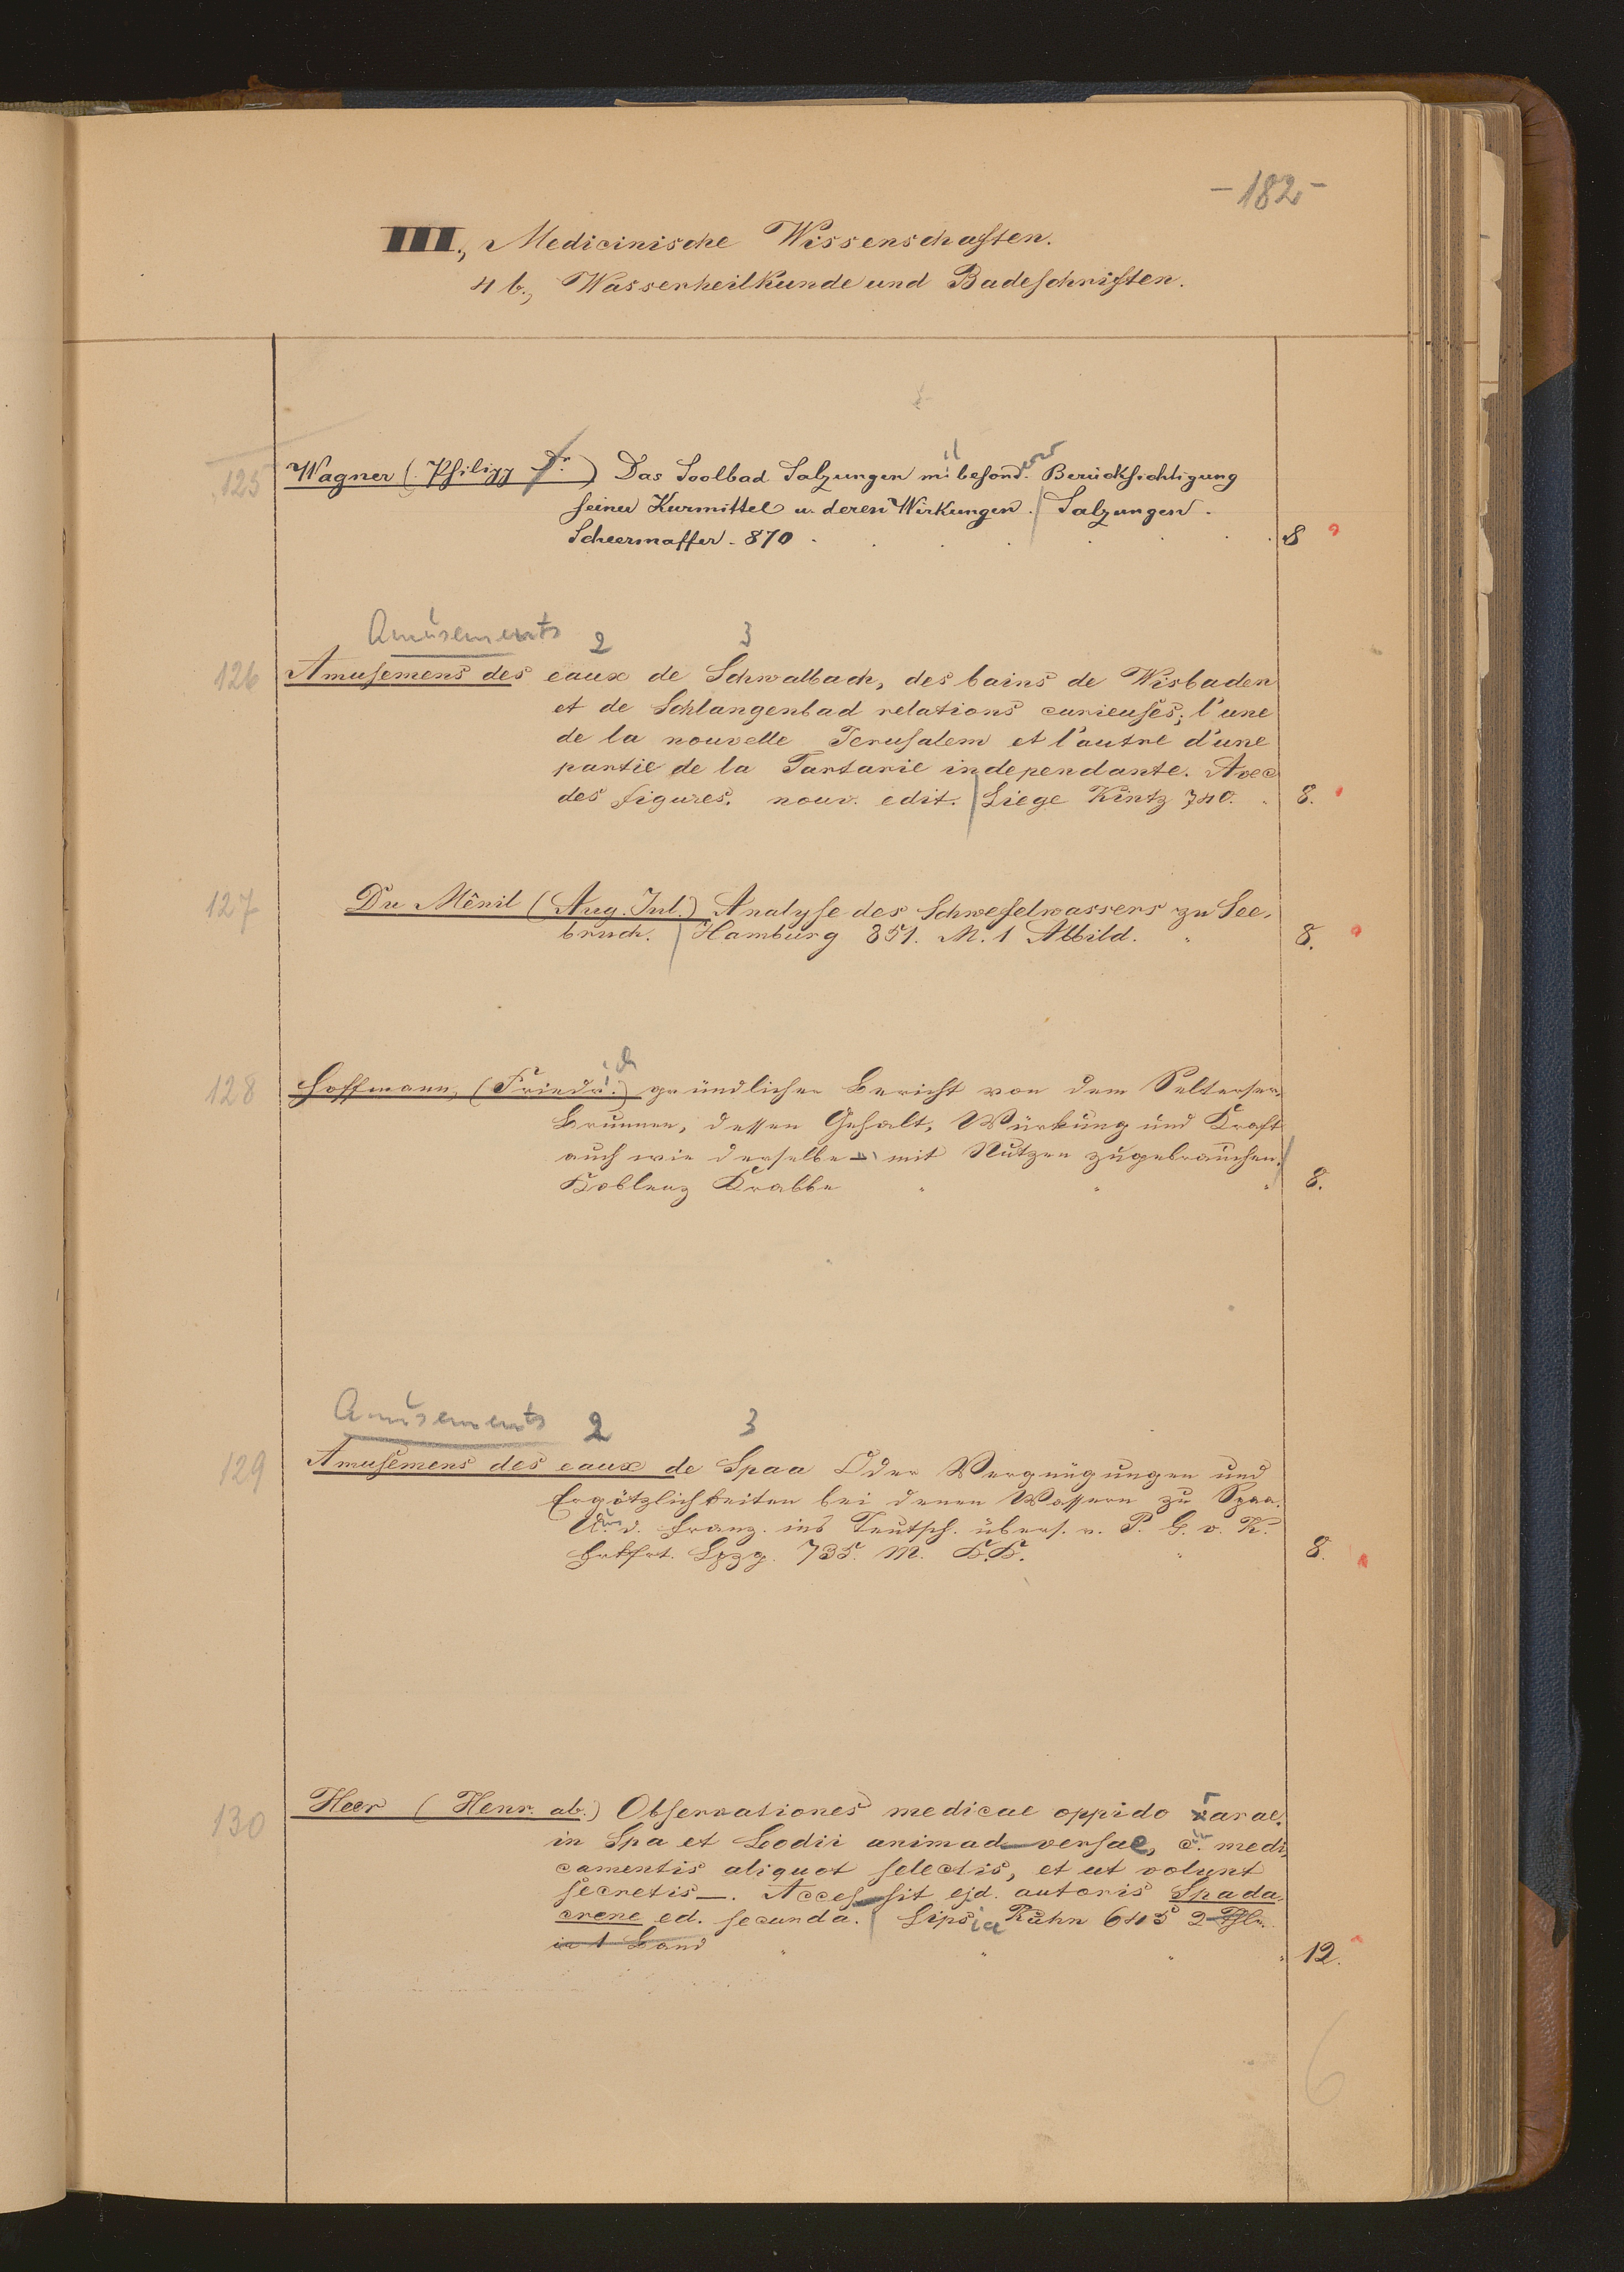 -182-
III., Medicinische Wissenschaften.
4 b., Wasserheilkunde und Badeschriften.
125
Wagner (Philipp Dr.) Das Soolbad Salzungen mit besond. Berücksichtigung
seiner Kurmittel u. deren Wirkungen. Salzungen.
Scheermesser. 870
8
Amüsements 2 3
126
Amusemens des eaux de Schwalbach, des bains de Wisbaden
et de Schlangenbad relations curieuses; l'une
de la nouvelle Jerusalem et l'autre d'une
partie de la Tartarie independante. Avec
des figures. nouv. edit. Liege Kintz 740.
8.
127
Du Mênil (Aug. Jul.) Analyse des Schwefelwassers zu See-
bruch. Hamburg 851. M. 1 Abbild.
8.
128
Hoffmann, (Friedrich) gründlicher Bericht von dem Selterser-
Brunnen, dessen Gehalt, Würkung und Kraft
auch wie derselbe mit Nutzen zugebrauchen.
Koblenz Krabbe
8.
Amüsements 2 3
129
Amusemens des eaux de Spaa Oder Vergnügungen und
Ergötzlichkeiten bei denen Wassern zu Spaa.
Aus d. Franz. ins Teutsch. übers. v. P. G. v. K.
Frkfrt. Lpzg. 735. M. K.K.
8.
130
Heer (Henr. ab.) Observationes medicae oppido rarae.
in Spa et Leodii animad-versae, c. medi-
camentis aliquot selectis, et ut volunt
secretis_. Acces-sit ejd. autoris Spada-
crene ed. secunda. Lipsia Rühn 645 2 Thle.
in 1 Band
12.
6